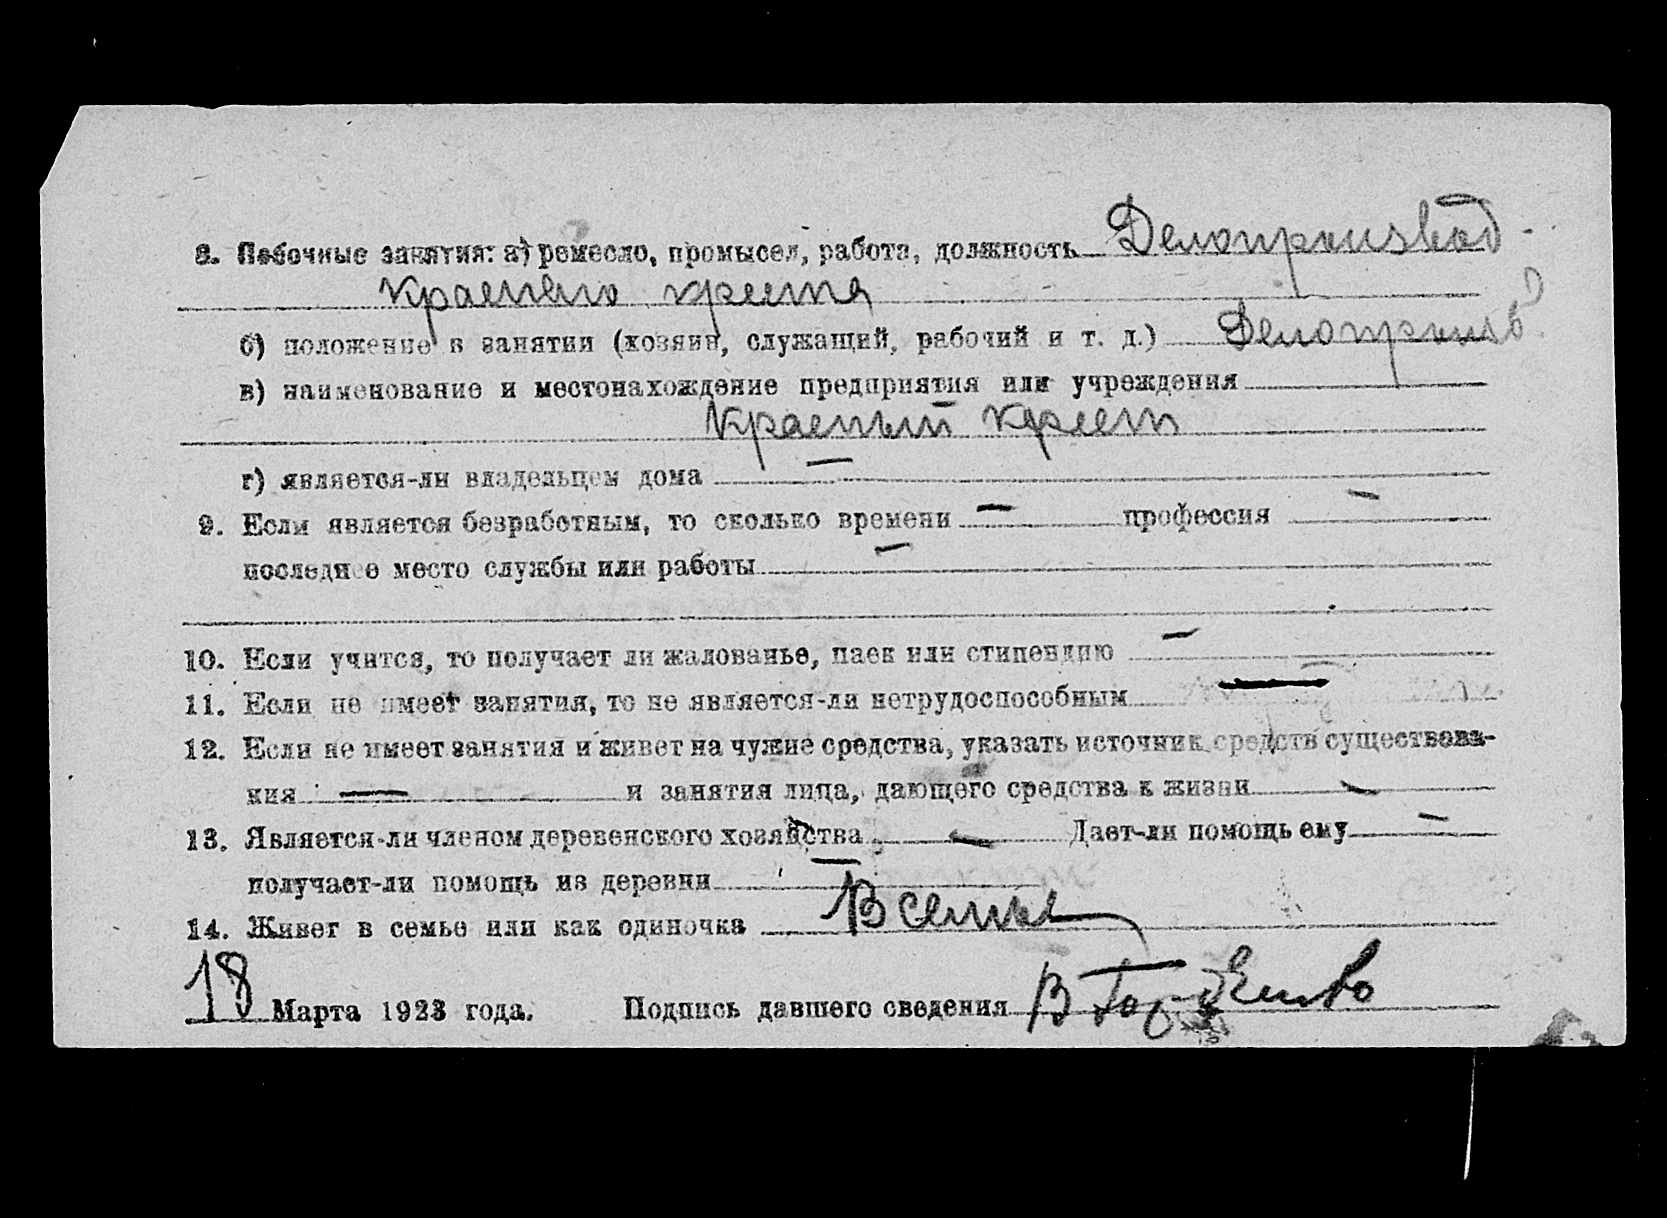 8. Побочные занятия: а) ремесло, промысел, работа, должность Делопроизвод
Красного креста
б) положение в занятии (хозяин, служащий, рабочий и т. д.) Делопроизв
в) наименование и местонахождение предприятия или учреждения
Красный крест
г) является-ли владельцем дома —
9. Если является безработным, то сколько времени — профессия —
последнее место службы или работы —
10. Если учится, то получает ли жалованье, паек или стипендию —
11. Если не имеет занятия, то не является-ли нетрудоспособным —
12. Если не имеет занятия и живет на чужие средства, указать источник средств существова-
ния — и занятия лица, дающего средства к жизни —
13. Является-ли членом деревенского хозяйства — Дает-ли помощь ему —
получает-ли помощь из деревни —
14. Живет в семье или как одиночка В семье
18 Марта 1923 года. Подпись давшего сведения В